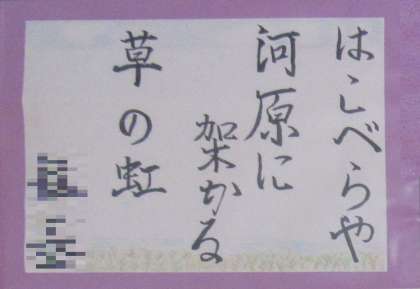 はこべらや
河原に
架かる
草の虹